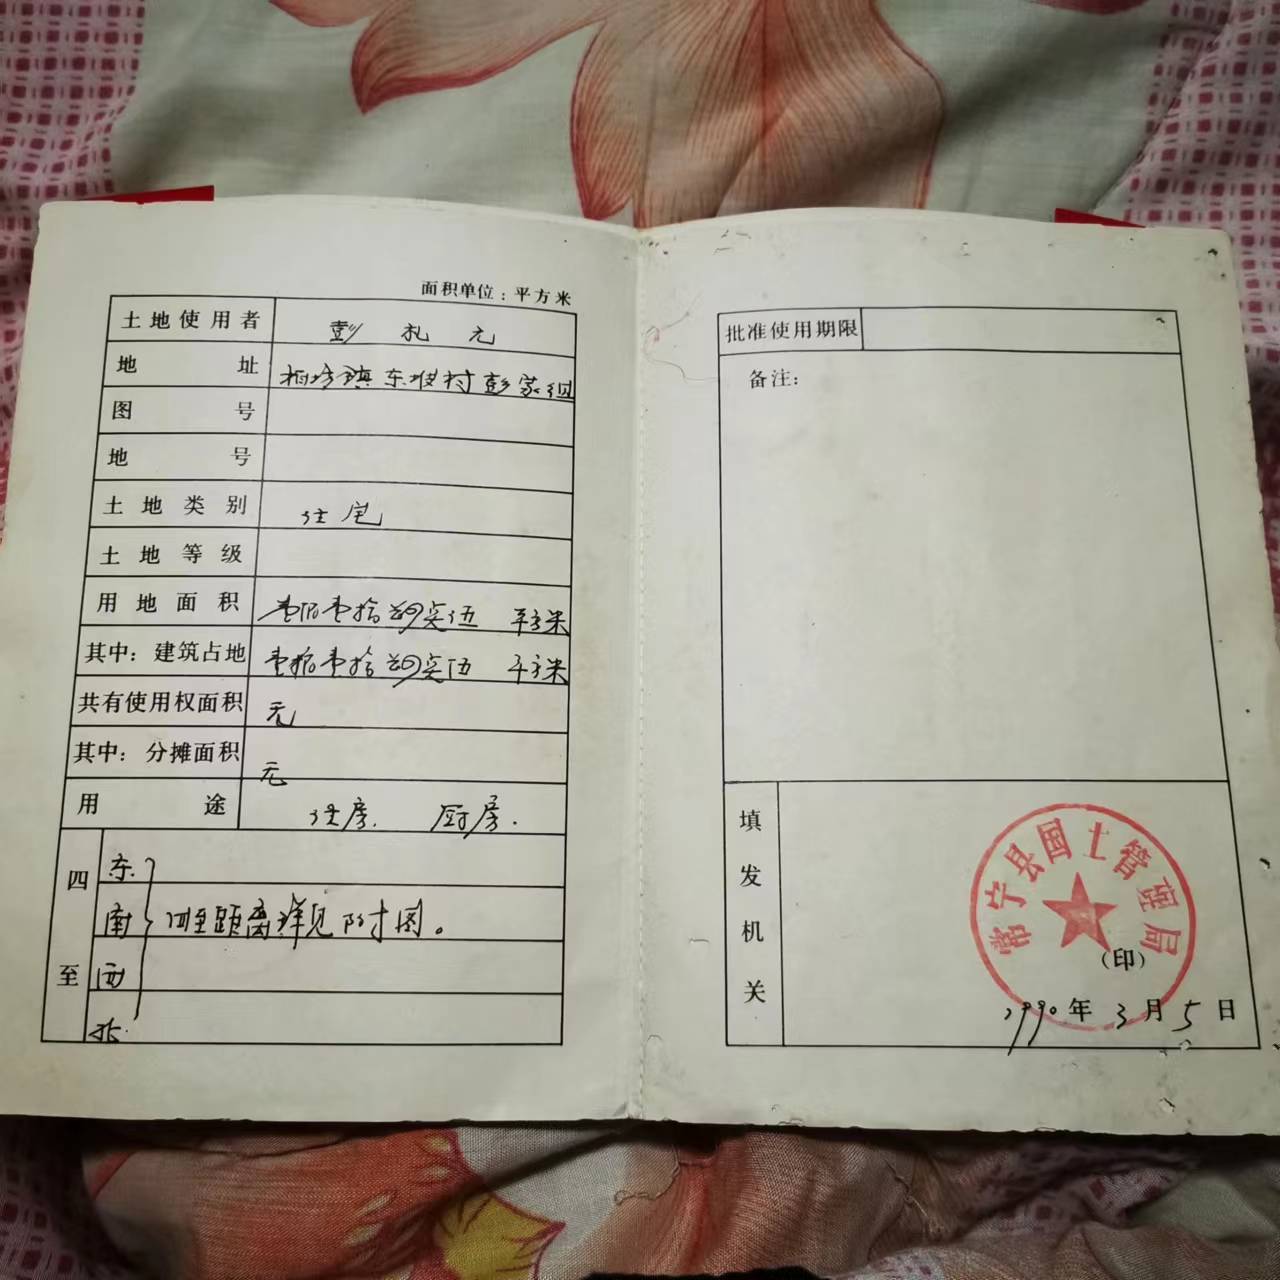 面积单位：平方米
土地使用者 彭礼元
地址 柏坊镇东坡村彭家组
图号
地号
土地类别 住宅
土地等级
用地面积 壹佰壹拾 伍 平方米
其中：建筑占地 壹佰壹拾 伍 平方米
共有使用权面积 无
其中：分摊面积 无
用途 住房. 厨房.
四至 东
南 四至距离详见附图。
西
北
批准使用期限
备注：
填发机关
常宁县国土管理局
（印）
1990年3月5日